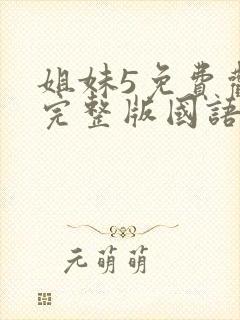 姐妹5免費
完整版國語
元萌萌